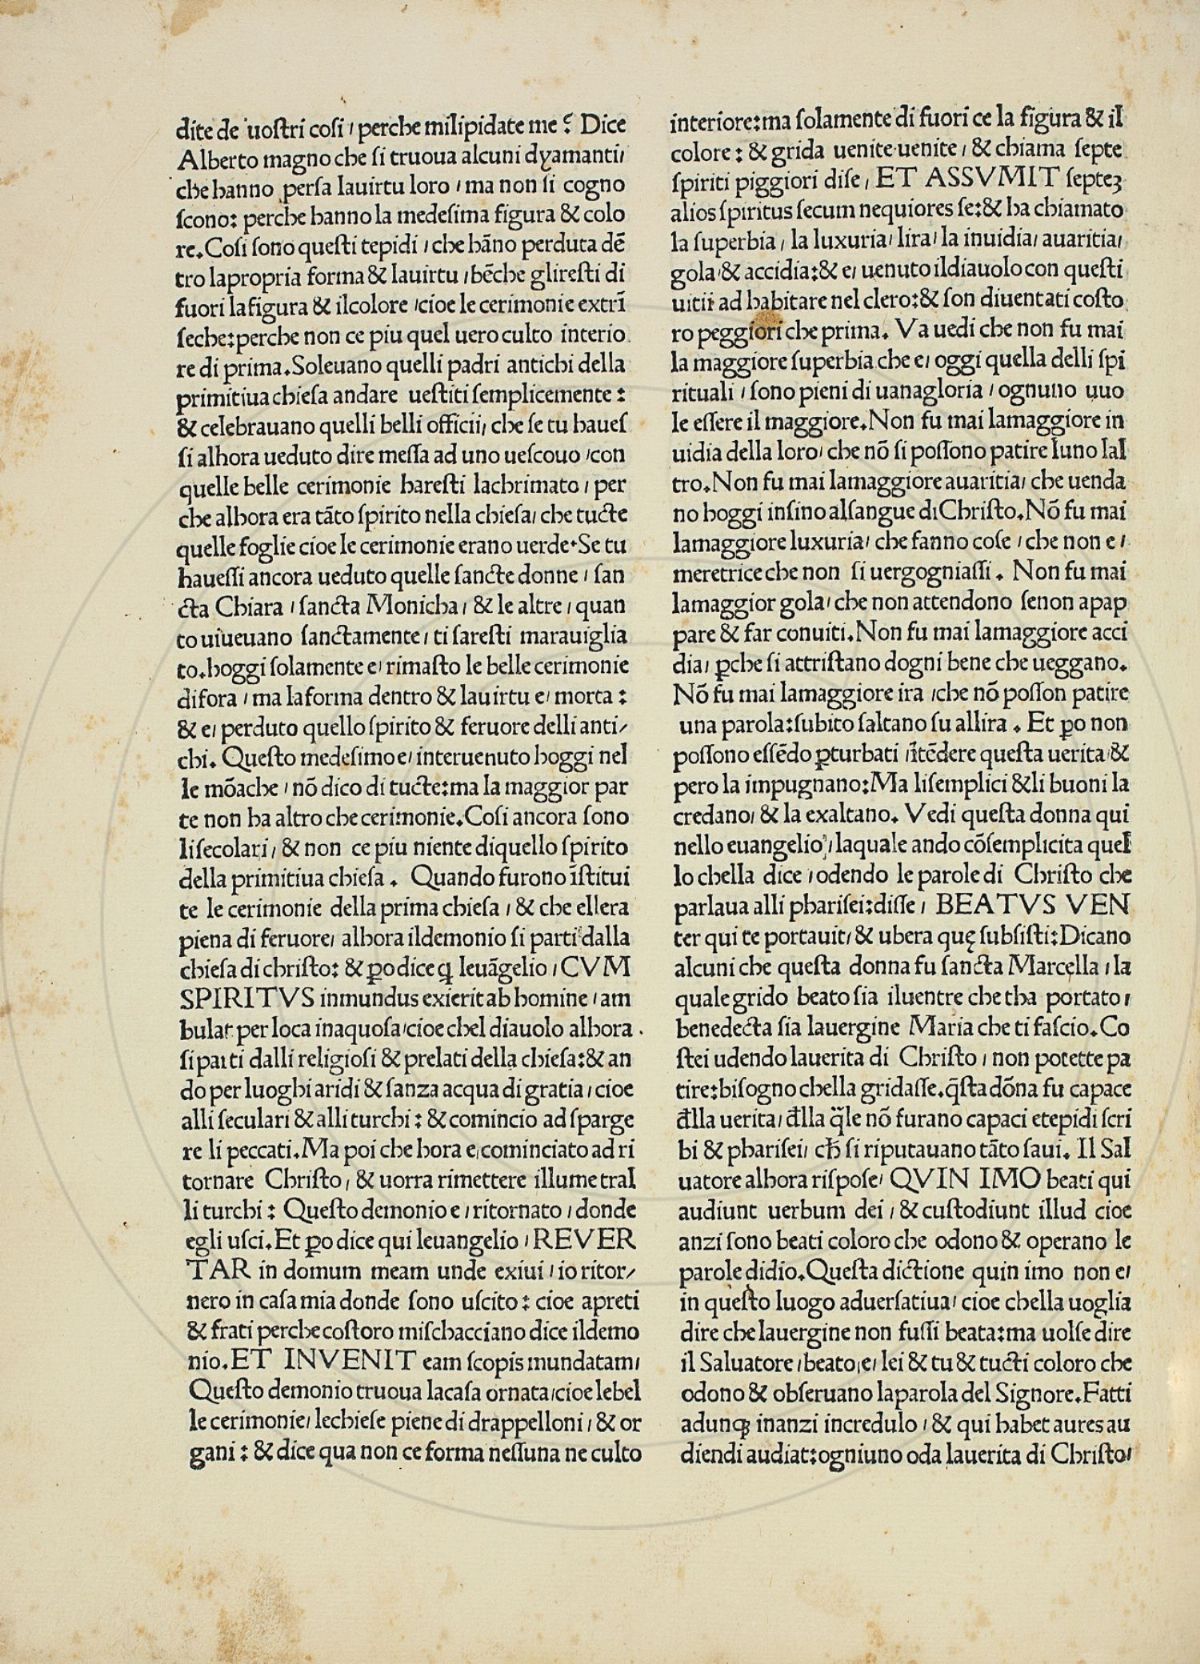 dite de uoſtri coſi / perche milipidate me ? Dice
Alberto magno che ſi truoua alcuni dyamanti/
che hanno perſa lauirtu loro / ma non ſi cogno
ſcono: perche hanno la medeſima figura & colo
re. Coſi ſono queſti tepidi / che hāno perduta dē
tro lapropria forma & lauirtu / bēche glireſti di
fuori lafigura & ilcolore / cioe le cerimonie extrī
ſeche: perche non ce piu quel uero culto interio
re di prima. Soleuano quelli padri antichi della
primitiua chieſa andare ueſtiti ſemplicemente :
& celebrauano quelli belli officii, che ſe tu haueſ
ſi alhora ueduto dire meſſa ad uno ueſcouo / con
quelle belle cerimonie hareſti lachrimato / per
che alhora era tāto ſpirito nella chieſa/ che tucte
quelle foglie cioe le cerimonie erano uerde. Se tu
haueſſi ancora ueduto quelle ſancte donne / ſan
cta Chiara / ſancta Monicha / & le altre / quan
to uiueuano ſanctamente / ti ſareſti marauiglia
to. hoggi ſolamente e/ rimaſto le belle cerimonie
difora / ma laforma dentro & lauirtu e/ morta :
& e/ perduto quello ſpirito & feruore delli anti/
chi. Queſto medeſimo e/ interuenuto hoggi nel
le mōache / nō dico di tucte: ma la maggior par
te non ha altro che cerimonie. Coſi ancora ſono
liſecolari / & non ce piu niente diquello ſpirito
della primitiua chieſa . Quando furono īſtitui
te le cerimonie della prima chieſa / & che ellera
piena di feruore/ alhora ildemonio ſi parti dalla
chieſa di chriſto: & ꝑo dice ꝗ leuāgelio / CVM
SPIRITVS inmundus exierit ab homine / am
bulat per loca inaquoſa/ cioe chel diauolo alhora
ſi parti dalli religioſi & prelati della chieſa: & an
do per luoghi aridi & ſanza acqua di gratia / cioe
alli ſeculari & alli turchi : & comincio ad ſparge
re li peccati. Ma poi che hora e/ cominciato ad ri
tornare Chriſto / & uorra rimettere illume tral
li turchi : Queſto demonio e/ ritornato / donde
egli uſci. Et ꝑo dice qui leuangelio / REVER
TAR in domum meam unde exiui / io ritor/
nero in caſa mia donde ſono uſcito : cioe apreti
& frati perche coſtoro miſchacciano dice ildemo
nio. ET INVENIT eam ſcopis mundatam/
Queſto demonio truoua lacaſa ornata/ cioe lebel
le cerimonie/ lechieſe piene di drappelloni / & or
gani : & dice qua non ce forma neſſuna ne culto
interiore: ma ſolamente di fuori ce la figura & il
colore : & grida uenite uenite / & chiama ſepte
ſpiriti piggiori diſe / ET ASSVMIT ſepteꝫ
alios ſpiritus ſecum nequiores ſe: & ha chiamato
la ſuperbia / la luxuria/ lira/ la inuidia/ auaritia/
gola/ & accidia: & e/ uenuto ildiauolo con queſti
uitii ad habitare nel clero: & ſon diuentati coſto
ro peggiori che prima. Va uedi che non fu mai
la maggiore ſuperbia che e/ oggi quella delli ſpi
rituali / ſono pieni di uanagloria / ognuno uuo
le eſſere il maggiore. Non fu mai lamaggiore in
uidia della loro/ che nō ſi poſſono patire luno lal
tro. Non fu mai lamaggiore auaritia/ che uenda
no hoggi inſino alſangue di Chriſto. Nō fu mai
lamaggiore luxuria/ che fanno coſe / che non e /
meretrice che non ſi uergogniaſſi . Non fu mai
lamaggior gola/ che non attendono ſenon apap
pare & far conuiti. Non fu mai lamaggiore acci
dia/ ꝑche ſi attriſtano dogni bene che ueggano.
Nō fu mai lamaggiore ira / che nō poſſon patire
una parola: ſubito ſaltano ſu allira . Et ꝑo non
poſſono eſſēdo ꝑturbati ītēdere queſta uerita/ &
pero la impugnano: Ma liſemplici & li buoni la
credano/ & la exaltano. Vedi queſta donna qui
nello euangelio / laquale ando cōſemplicita quel
lo chella dice / odendo le parole di Chriſto che
parlaua alli phariſei: diſſe / BEATVS VEN
ter qui te portauit/ & ubera quę ſubſiſti: Dicano
alcuni che queſta donna fu ſancta Marcella / la
quale grido beato ſia iluentre che tha portato /
benedecta ſia lauergine Maria che ti faſcio. Co
ſtei udendo lauerita di Chriſto / non potette pa
tire: biſogno chella gridaſſe. q̄ſta dōna fu capace
đlla uerita/ đlla q̄le nō furano capaci etepidi ſcri
bi & phariſei/ cħ ſi riputauano tāto ſaui. Il Sal
uatore alhora riſpoſe/ QVIN IMO beati qui
audiunt uerbum dei / & cuſtodiunt illud cioe
anzi ſono beati coloro che odono & operano le
parole didio. Queſta dictione quin imo non e/
in queſto luogo aduerſatiua/ cioe chella uoglia
dire che lauergine non fuſſi beata: ma uolſe dire
il Saluatore / beato e/ lei & tu & tucti coloro che
odono & obſeruano laparola del Signore. Fatti
adunqꝫ inanzi incredulo / & qui habet aures au
diendi audiat: ogniuno oda lauerita di Chriſto/